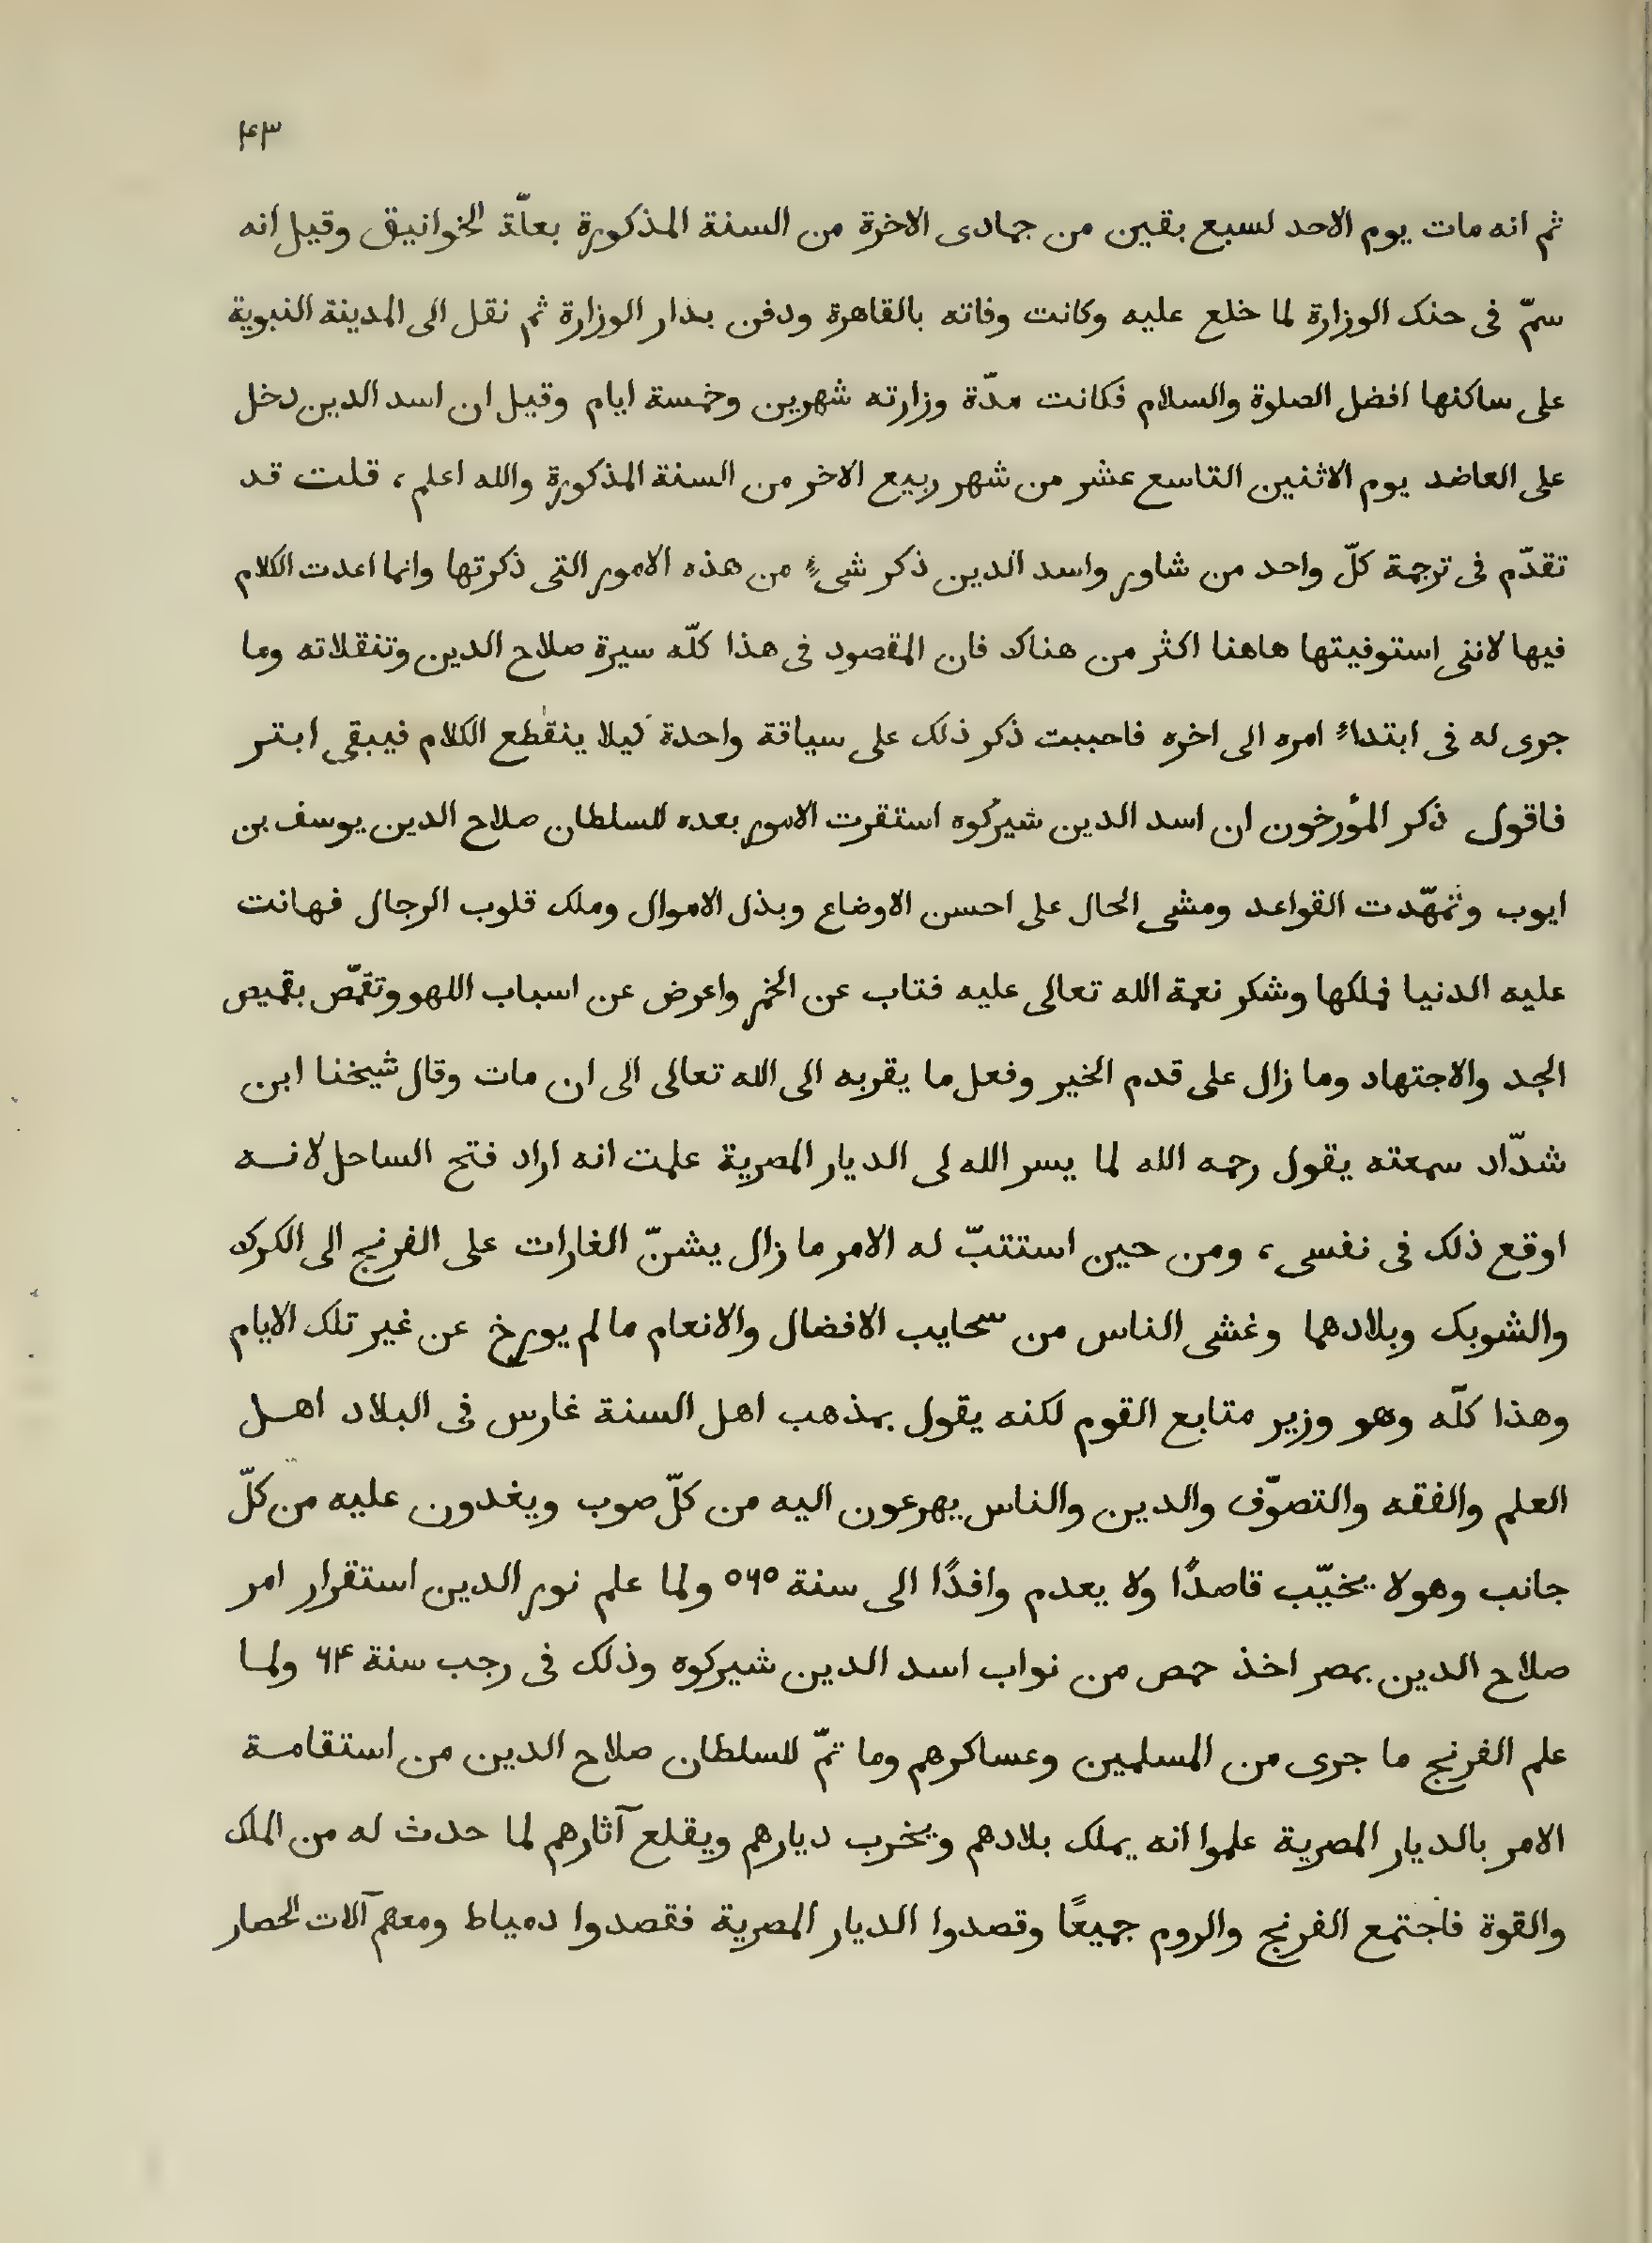 ۴۳
ثم انه مات يوم الاحد لسبع بقين من جمادى الاخرة من السنة المذكورة بعلّة الخوانيق وقيل انه
سمّ فى حنك الوزارة لما خلع عليه وكانت وفاته بالقاهرة ودفن بدار الوزارة ثم نقل الى المدينة النبوية
على ساكنها افضل الصلوة والسلام فكانت مدّة وزارته شهرين وخمسة ايام وقيل ان اسد الدين دخل
على العاضد يوم الاثنين التاسع عشر من شهر ربيع الاخر من السنة المذكورة والله اعلم ، قلت قد
تقدّم فى ترجمة كلّ واحد من شاور واسد الدين ذكر شىءٍ من هذه الامور التى ذكرتها وانما اعدت الكلام
فيها لاننى استوفيتها هاهنا اكثر من هناك فان المقصود فى هذا كلّه سيرة صلاح الدين وتنقلاته وما
جرى له فى ابتداءِ امره الى اخره فاحببت ذكر ذلك على سياقة واحدة كيلا ينقطع الكلام فيبقى ابتر
فاقول ذكر المؤرخون ان اسد الدين شيركوه استقرت الامور بعده للسلطان صلاح الدين يوسف بن
ايوب وتمهّدت القواعد ومشى الحال على احسن الاوضاع وبذل الاموال وملك قلوب الرجال فهانت
عليه الدنيا فملكها وشكر نعمة الله تعالى عليه فتاب عن الخمر واعرض عن اسباب اللهو وتقمّص بقميص
الجد والاجتهاد وما زال على قدم الخير وفعل ما يقربه الى الله تعالى الى ان مات وقال شيخنا ابن
شدّاد سمعته يقول رحمه الله لما يسر الله لى الديار المصرية علمت انه اراد فتح الساحل لانه
اوقع ذلك فى نفسى ، ومن حين استتبّ له الامر ما زال يشنّ الغارات على الفرنج الى الكرك
والشوبك وبلادهما وغشى الناس من سحايب الافضال والانعام ما لم يورخ عن غير تلك الايام
وهذا كلّه وهو وزير متابع القوم لكنه يقول بمذهب اهل السنة غارس فى البلاد اهل
العلم والفقه والتصوّف والدين والناس يهرعون اليه من كلّ صوب ويغدون عليه من كلّ
جانب وهو لا يخيّب قاصدًا ولا يعدم وافدًا الى سنة ٥٦٥ ولما علم نور الدين استقرار امر
صلاح الدين بمصر اخذ حمص من نواب اسد الدين شيركوه وذلك فى رجب سنة ۶۴ ولما
علم الفرنج ما جرى من المسلمين وعساكرهم وما تمّ للسلطان صلاح الدين من استقامة
الامر بالديار المصرية علموا انه يملك بلادهم ويخرب ديارهم ويقلع آثارهم لما حدث له من الملك
والقوة فاجتمع الفرنج والروم جميعًا وقصدوا الديار المصرية فقصدوا دمياط ومعهم آلات الحصار